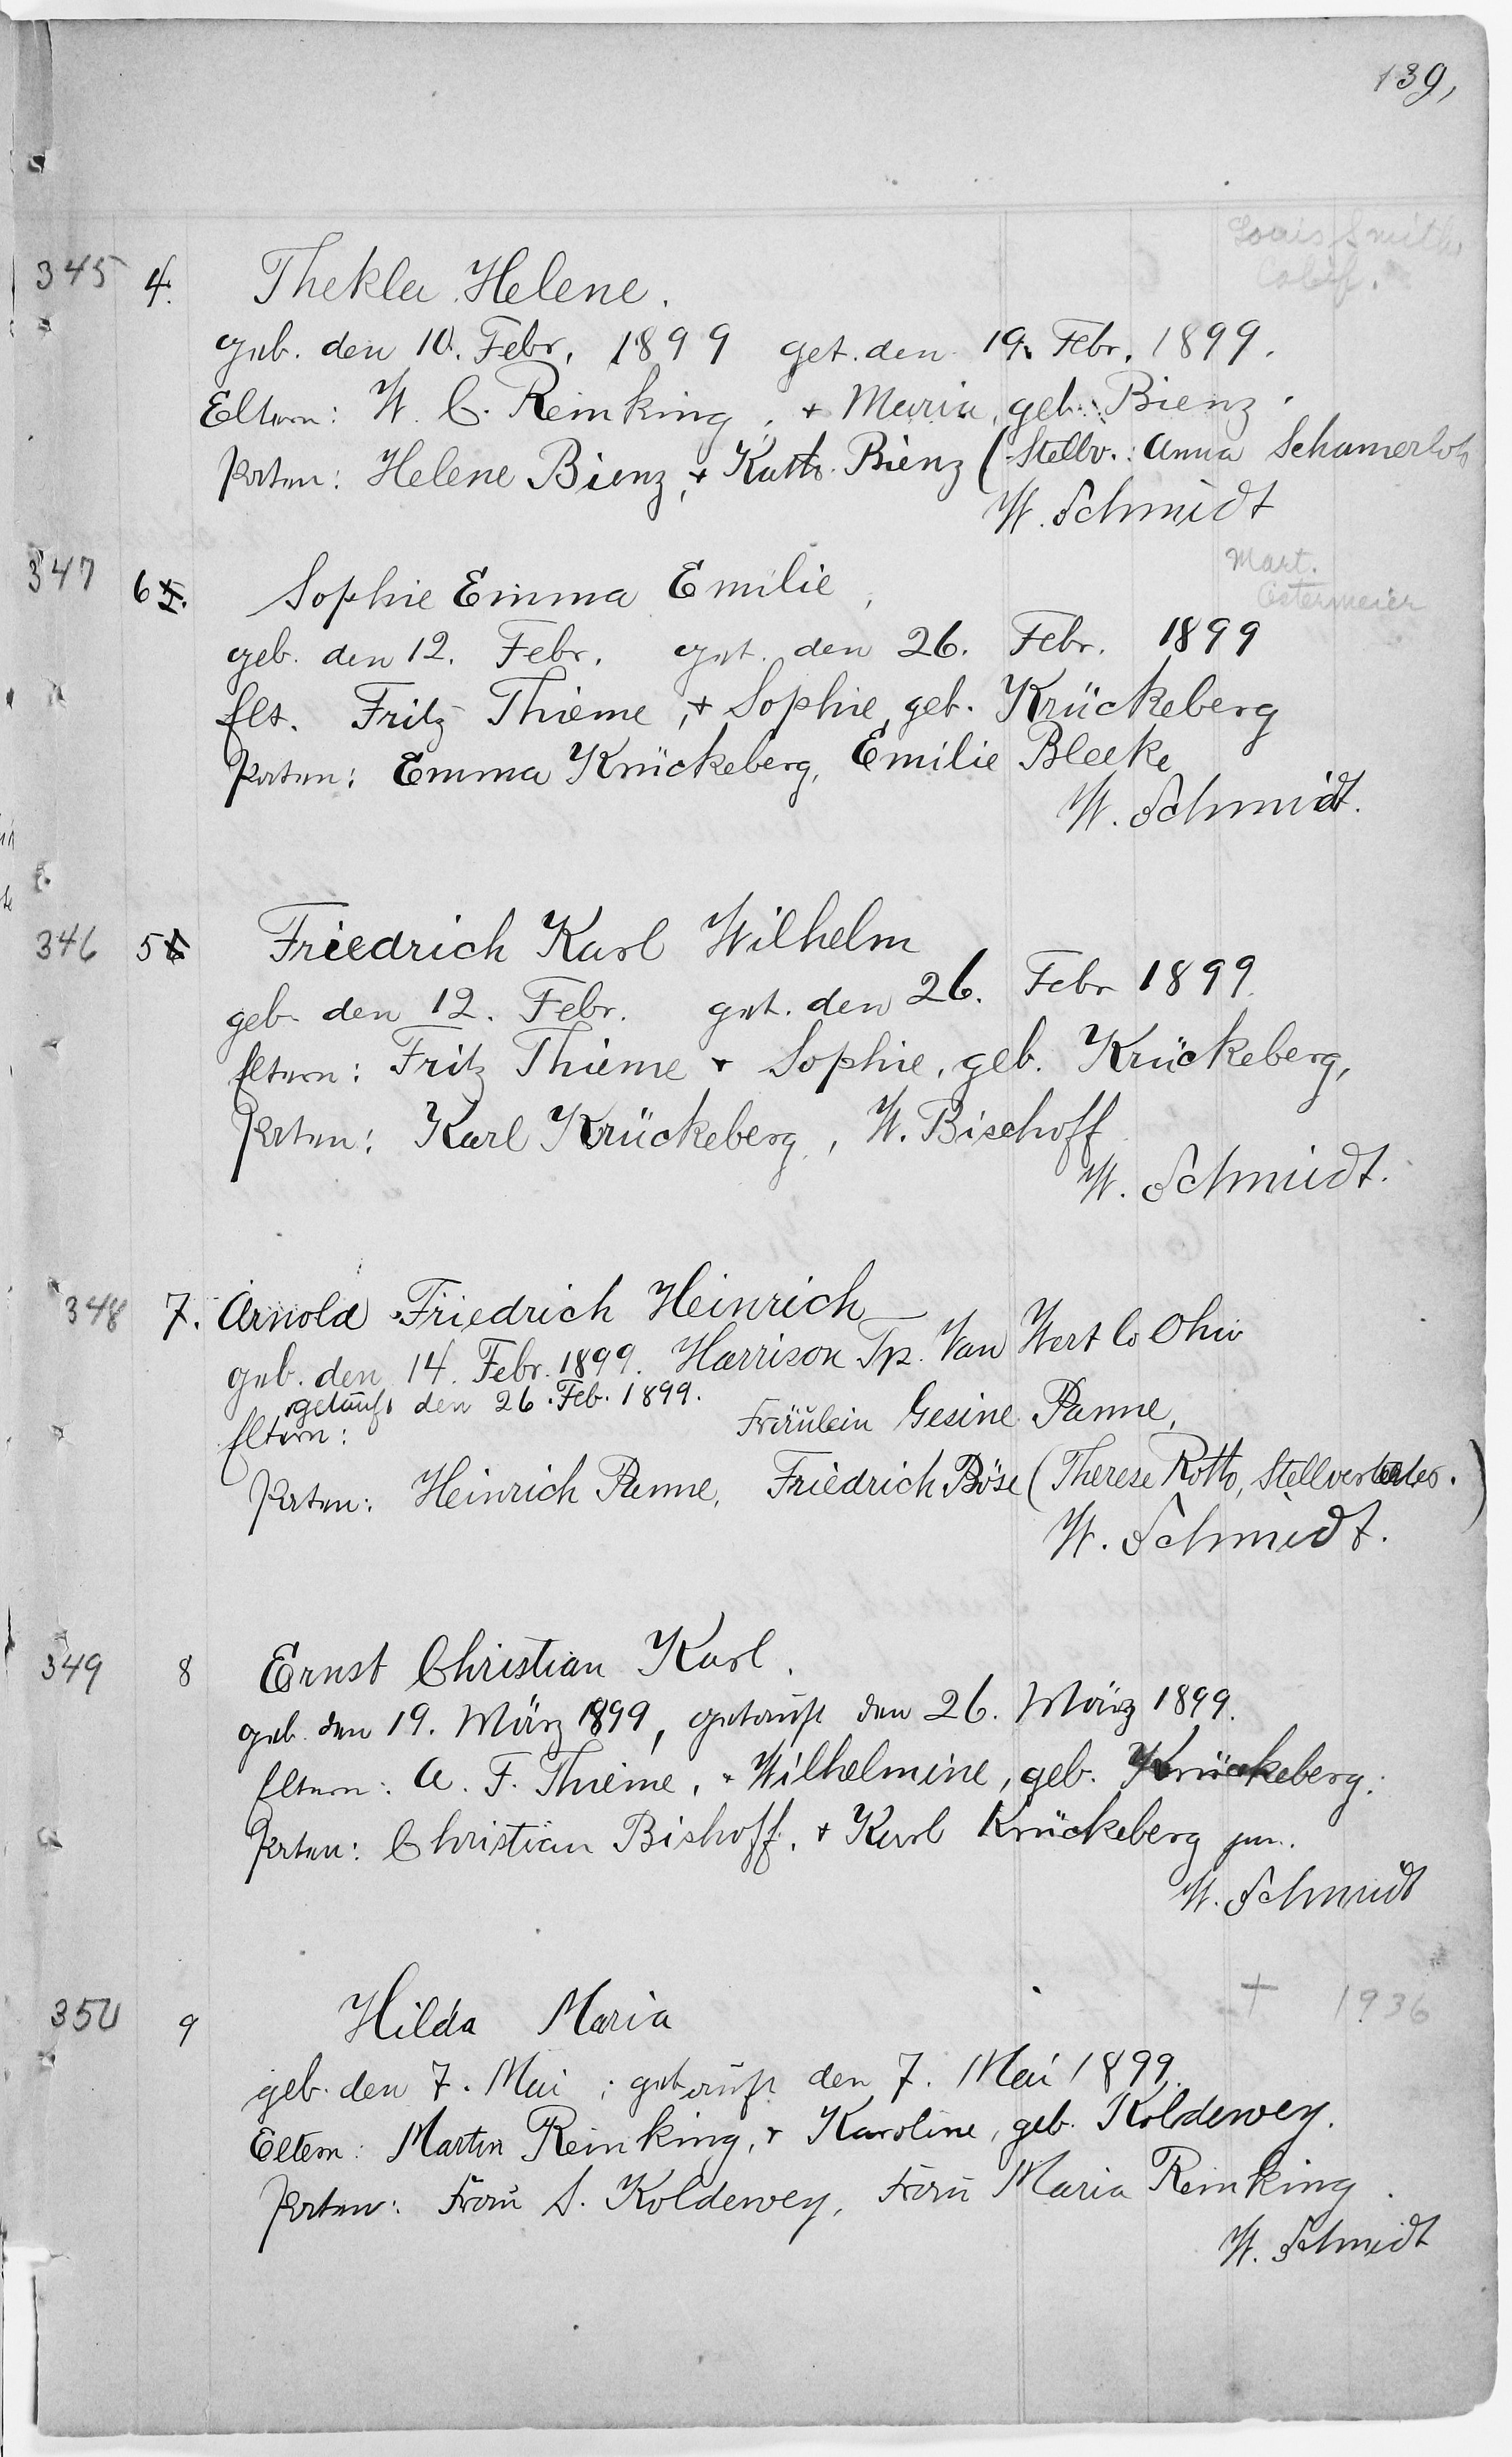 139,
Louis Smith,
Calif.
345 4. Thekla Helene.
geb. den 10. Febr. 1899 get. den 19. Febr. 1899.
Eltern: W. C. Reinking, + Maria, geb. Bienz.
Paten: Helene Bienz, + Kath. Bienz (Stellv.: Anna Schamerloh
W. Schmidt
Mart.
Ostermeier
347 6 Sophie Emma Emilie,
geb. den 12. Febr. get. den 26. Febr. 1899
Elt. Fritz Thieme, + Sophie, geb. Krückeberg
Paten: Emma Krückeberg, Emilie Bleeke
W. Schmidt.
346 5 Friedrich Karl Wilhelm
geb. den 12. Febr. get. den 26. Febr 1899.
Eltern: Fritz Thieme + Sophie, geb. Krückeberg,
Paten: Karl Krückeberg, W. Bischoff
W. Schmidt.
348 7. Arnold Friedrich Heinrich
geb. den 14. Febr. 1899. Harrison Tp. Van Wert Co Ohio
getauft den 26. Feb. 1899.
Eltern: Fräulein Gesine Panne,
Paten: Heinrich Panne, Friedrich Böse (Therese Rotto, Stellvertreter.)
W. Schmidt.
349 8 Ernst Christian Karl.
geb. den 19. März 1899, getauft den 26. März 1899.
Eltern: A. F. Thieme, + Wilhelmine, geb. Krückeberg.
Paten: Christian Bishoff, + Karl Krückeberg jun.
W. Schmidt
† 1936
350 9 Hilda Maria
geb. den 7. Mai; getauft den 7. Mai 1899.
Eltern: Martin Reinking, + Karoline, geb. Koldewey.
Paten: Frau S. Koldewey, Frau Maria Reinking.
W. Schmidt